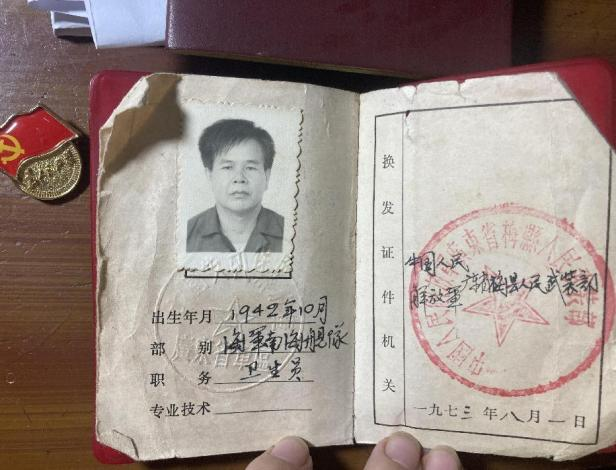 出生年月 1942年10月
部 别 海军南海舰队
职 务 卫生员
专业技术
换发证件机关
中国人民
解放军广东梅县人民武装部
一九七三年八月一日